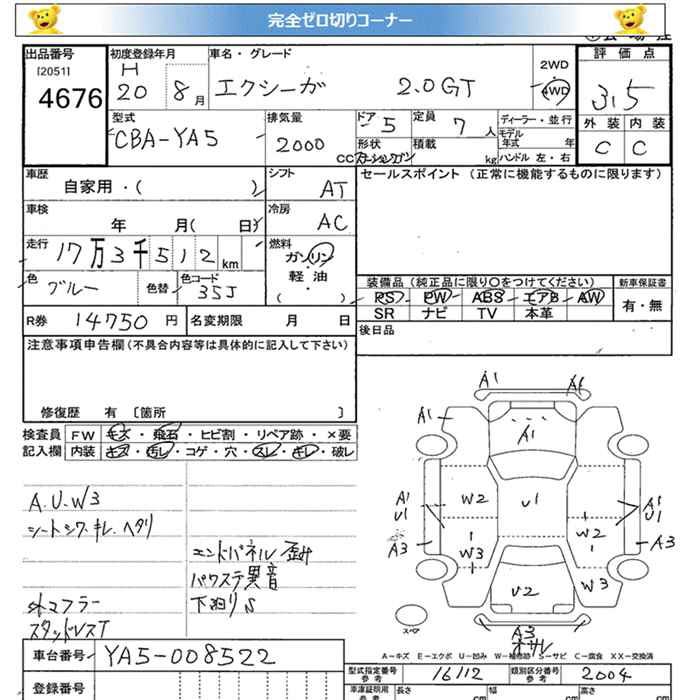 完全ゼロ切りコーナー
出品番号
[2051]
4676
初度登録年月
H
20 8月
車名・グレード
エクシーガ 2.0GT
2WD
・
4WD
評価点
3.5
外装 内装
C C
型式
CBA-YA5
排気量
2000
CC
ドア
5
定員
7人
形状
ステーションワゴン
積載
kg
ディーラー・並行
モデル
年式 年
ハンドル 左・右
車歴
自家用・( )
シフト
AT
車検
年 月( 日)
冷房
AC
走行
17万3千512km
燃料
ガソリン
軽・油
・
( )
色
ブルー
色替
色コード
35J
セールスポイント (正常に機能するものに限ります)
装備品 (純正品に限り〇をつけてください)
PS PW ABS エアB AW
SR ナビ TV 本革
新車保証書
有・無
R券 14750円
名変期限 月 日
後日品
注意事項申告欄(不具合内容等は具体的に記入して下さい)
修復歴 有 〔箇所 〕
検査員
記入欄
FW キズ・飛石・ヒビ割・リペア跡・×要
内装 キズ・汚レ・コゲ・穴・スレ・キレ・破レ
A.U.W3
シートシワ.キレ.ヘタリ
エンドパネル歪み
パワステ異音
外マフラー
下廻りS
スタッドレスT
A1 A1
A1
A1
A1
U1
W2
U1
A1
U1
A3
W3
W2
A3
U2
W3
A3
オサレ
スペア
A−キズ E−エクボ U−凹み W−補修跡 S−サビ C−腐食 XX−交換済
車台番号 YA5-008522
登録番号
型式指定番号
参考
16112
類別区分番号
参考
2004
車庫証明用
参考
長さ
cm
幅
cm
高さ
cm